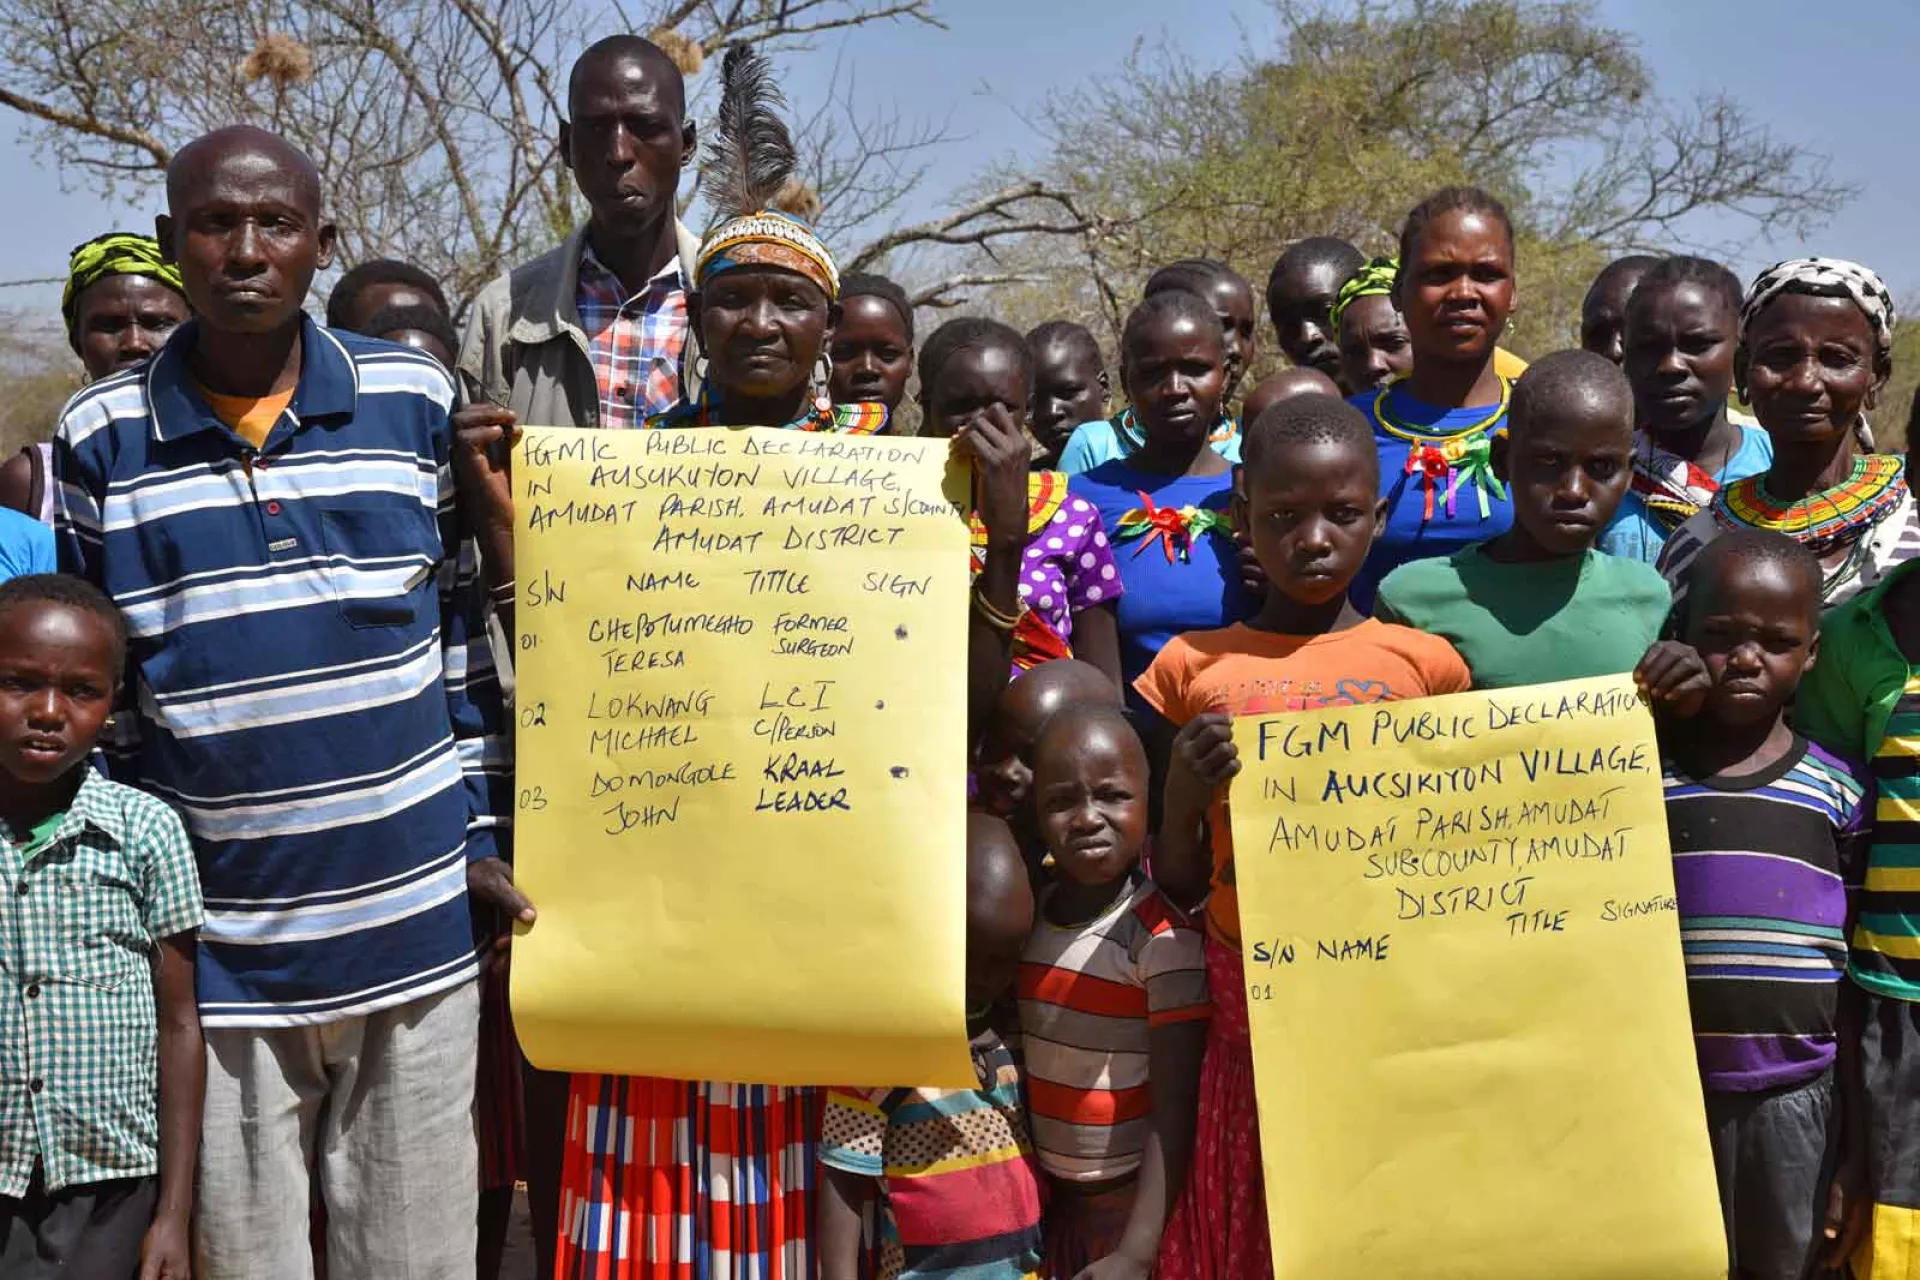 FGM/C PUBLIC DECLARATION
IN AUSUKUYON VILLAGE,
AMUDAT PARISH, AMUDAT S/COUNTY
AMUDAT DISTRICT
S/N NAME TITTLE SIGN
01. CHEPOTUMEGHO FORMER
TERESA SURGEON
02 LOKWANG LCI
MICHAEL C/PERSON
03 DOMONGOLE KRAAL
JOHN LEADER
FGM PUBLIC DECLARATION
IN AUCSIKIYON VILLAGE,
AMUDAT PARISH, AMUDAT
SUBCOUNTY, AMUDAT
DISTRICT
S/N NAME TITLE SIGNATURE
01